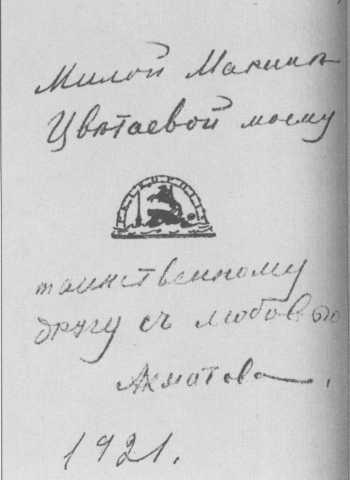 Милой Маринѣ
Цвѣтаевой моему
таинственному
другу съ любовью
Ахматова.
1921.